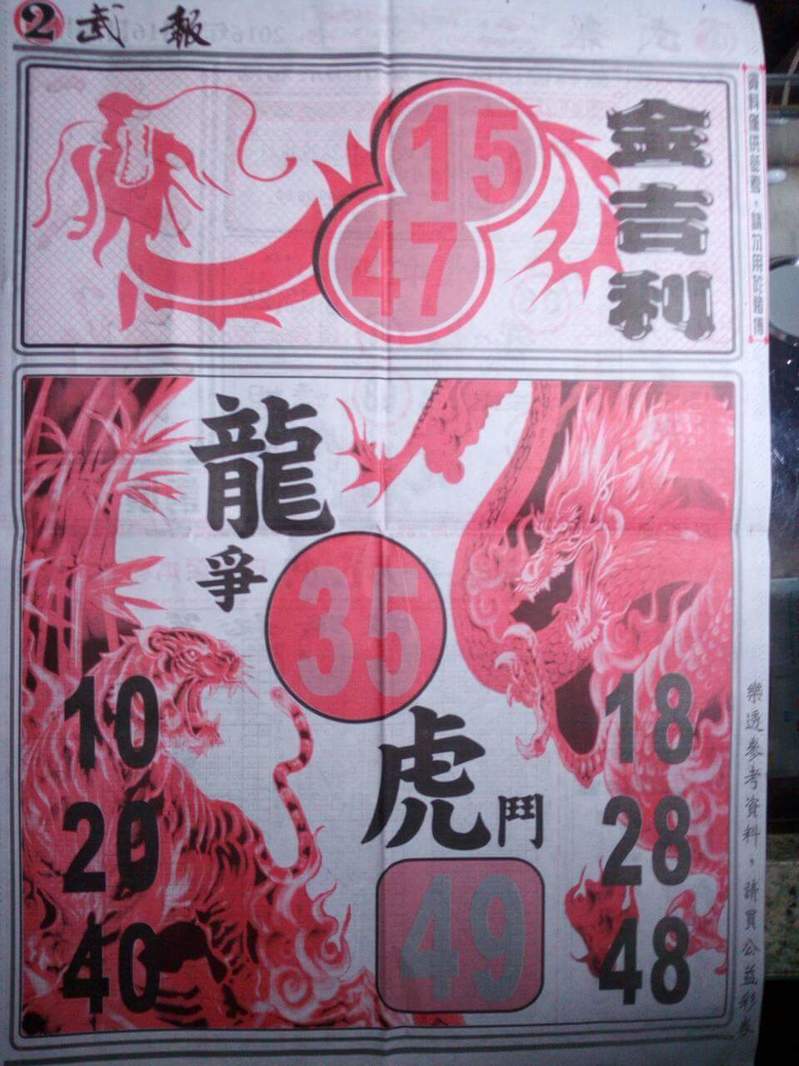 2 武報
金吉利
15
47
資料僅供參考，請勿用於賭博
龍
爭
35
虎
鬥
49
10
20
40
18
28
48
樂透參考資料，請買公益彩券